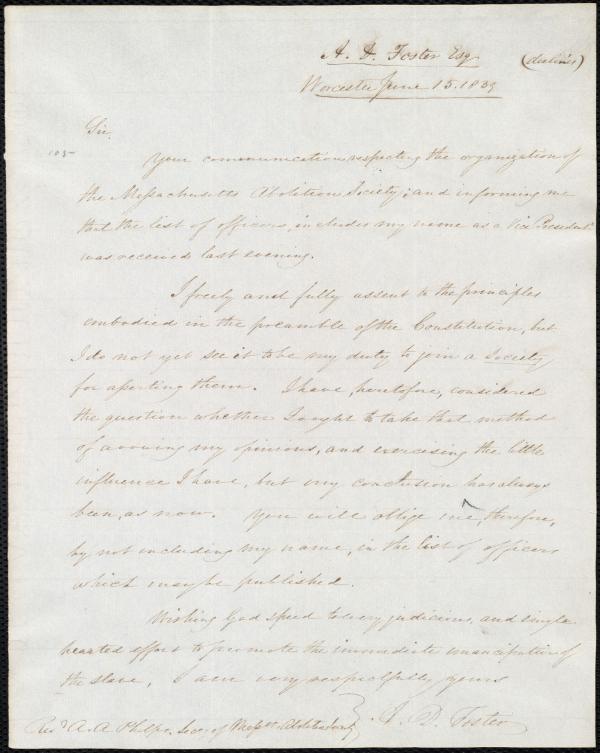 A. D. Foster Esq. (declines)
Worcester June 15. 1839
Sir,
Your communication respecting the organization of
the Massachusetts Abolition Society; and informing me
that the list of officers, includes my name as a Vice President
was received last evening.
I freely and fully assent to the principles
embodied in the preamble of the Constitution, but
I do not yet see it to be my duty to join a Society
for aserting them. I have, heretofore, considered
the question whether I ought to take that method
of avowing my opinions, and exercising the little
influence I have, but my conclusion has always
been, as now. You will oblige me, therefore,
by not including my name, in the list of officers
which may be published.
Wishing God speed to every judicious, and single
hearted effort to promote the immediate emancipation of
the slave, I am very respectfully yours
A. D. Foster
Revd A. A. Phelps, Secy of Masstts Abolition Socy